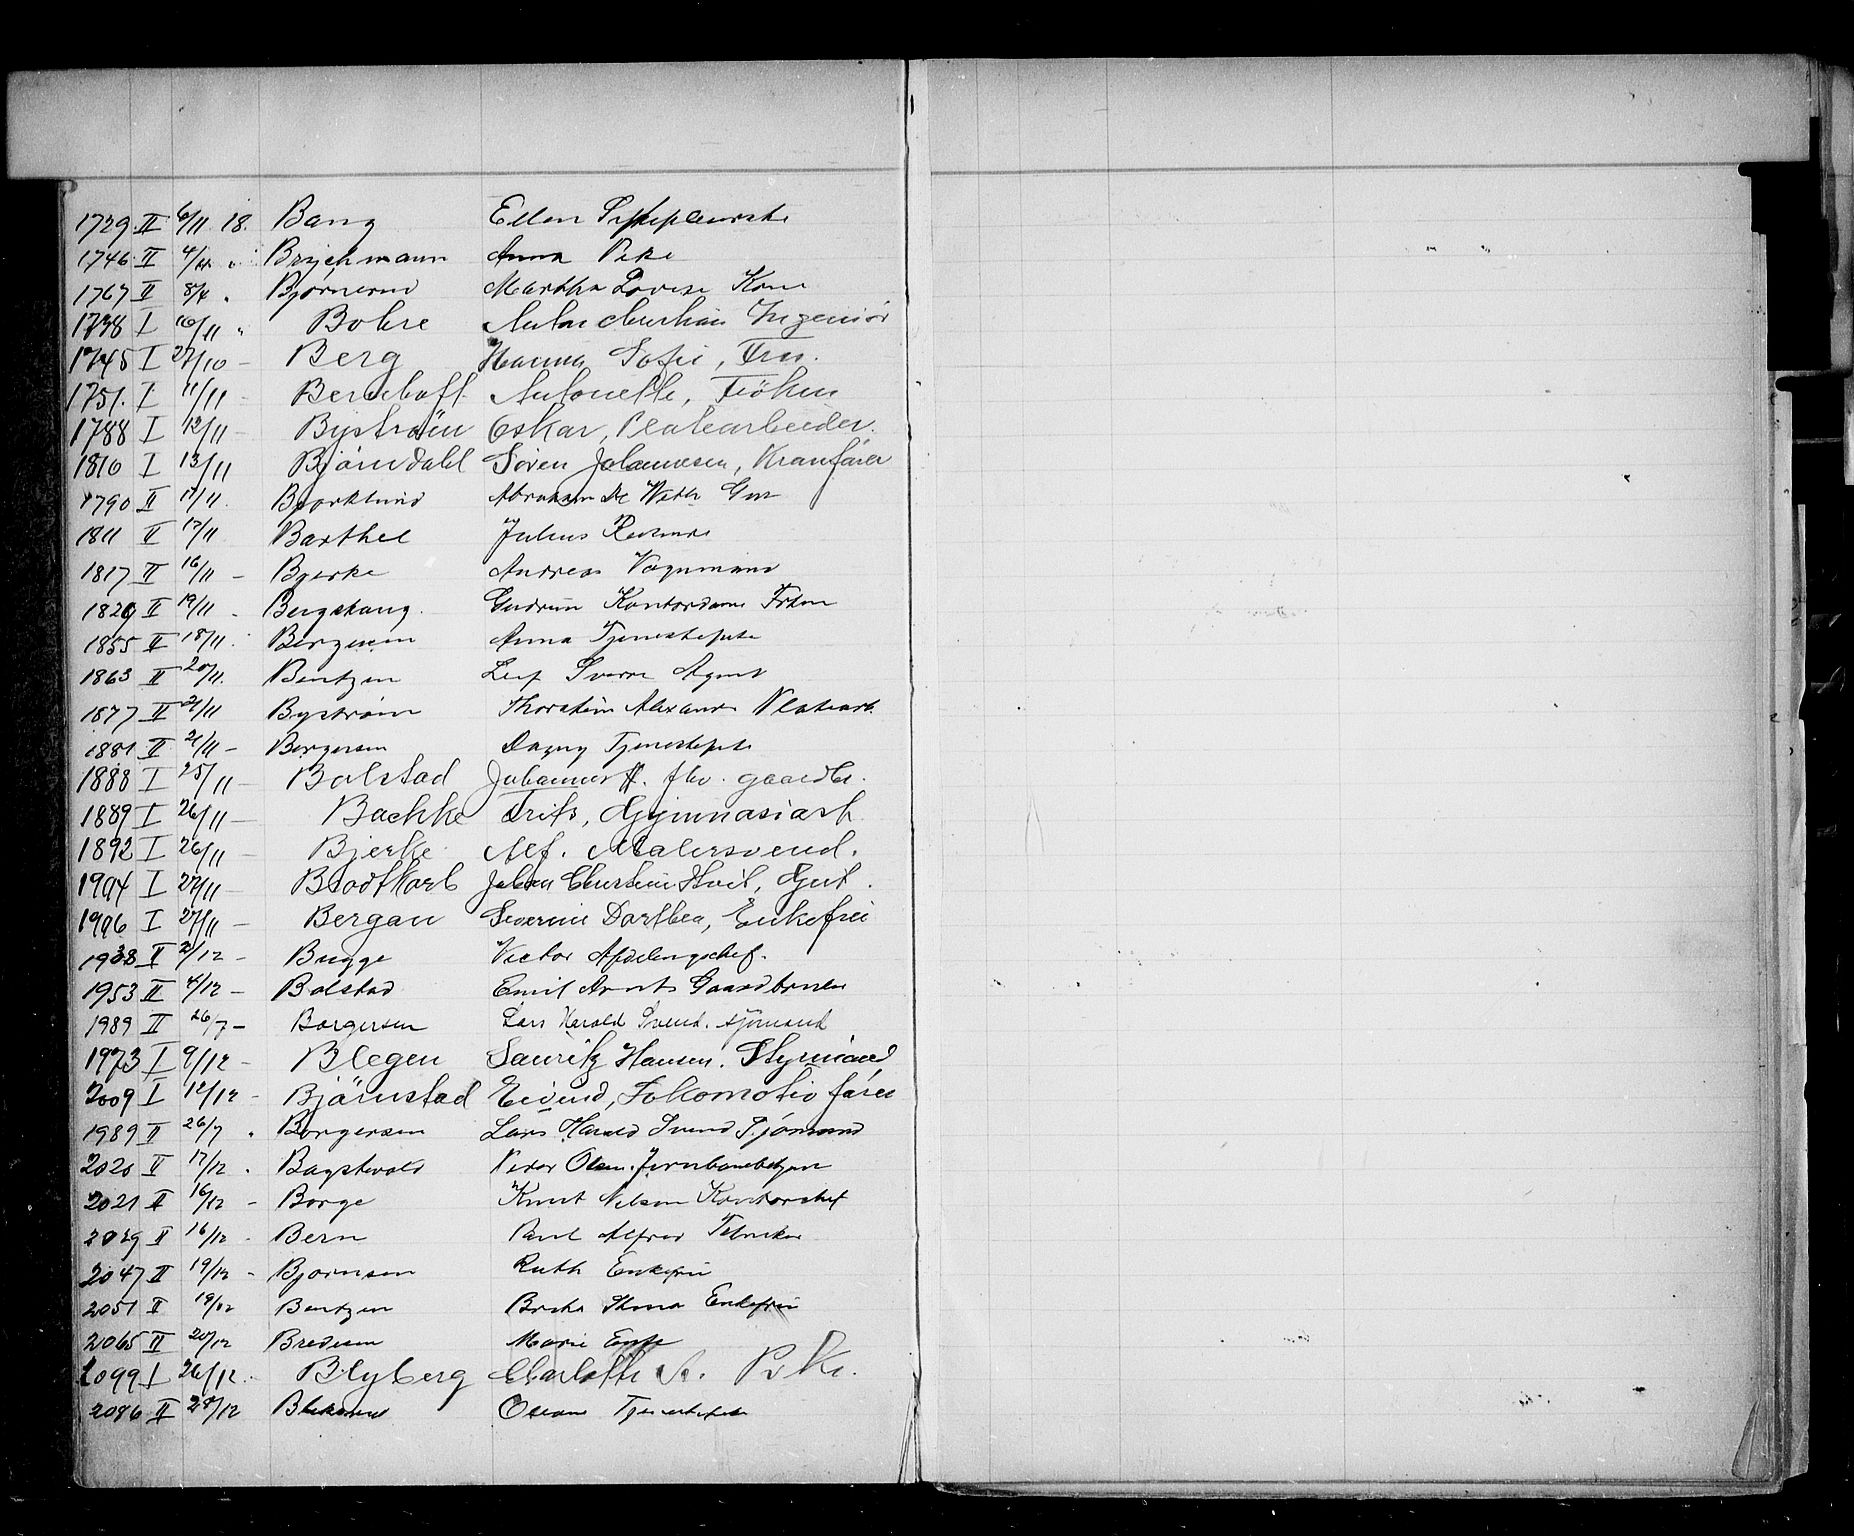 1729 II 6/11 18. Bang Ellen
1746 II 4/11 " Brychmann Anna Pike
1767 II 8/4 " Martha Lovise Kone
1738 I 10/11 " Bohre Anton Christian Ingeniør
1745 I 27/10 – Berg Hanna Sofie, Fru.
1751. I 11/11 – Berghoff Antonette, Fröken
1788 I 12/11 – Byström Oskar, Platearbeider.
1810 I 13/11 Björndahl Sören Johannesen, Kranförer
1790 II 17/11. Bjorklund Abraham De Gut
1811 II 17/11 Barthel Julius
1817 II 16/11 – Bjerke Andreas Vognmand
1829 II 19/11 – Bergskaug. Gudrun Kontordame Frken
1855 II 18/11. Bergesen Anna Tjenestepike
1863 II 20/11. Bentzen Leif Sverre Agent
1877 II 21/11 Bystrøm Thorstein Alexander Platearb.
1881 II 21/11 – Borgersen Dagny Tjenestepike
1888 I 25/11 – Bolstad Johannes A. fhv. gaardbr.
1889 I 26/11 – Bachke Frits, Gymnasiast
1892 I 26/11 – Bjerke Alf. Malersvend.
1904 I 27/11 – Brodtkorb Johan Christian Hvit, Gut.
1906 I 27/11 – Bergan Severine Dorthea, Enkefru
1938 II 2/12 – Bugge Victor Afdelingschef.
1953 II 4/12 – Bolstad Emil Arnt Gaardbruker
1989 II 26/7 – Borgersen Lars Harald Svend. sjömand
1973 I 9/12 – Blegen Lauritz Hansen. Styrmand
2009 I 12/12 – Björnstad Eivind, Lokomotivförer
1989 II 26/7 " Borgersen Lars Harald Svend Sjömand
2020 II 17/12 . Peder Olsen. Jernbanebetjen
2021 II 16/12 – Borge Knut Nilsen Kontorchef
2029 II 16/12 – Bern Paul Alfred
2047 II 19/12 – Bjørnsen Ruth Enkefru
2051 II 19/12 Bentzen Enkefru
2065 II 20/12 Bredesen Marie Enke
2099 I 26/12. – Blyberg Charlotte A. Pike.
2086 II 28/12 Tjenestepike